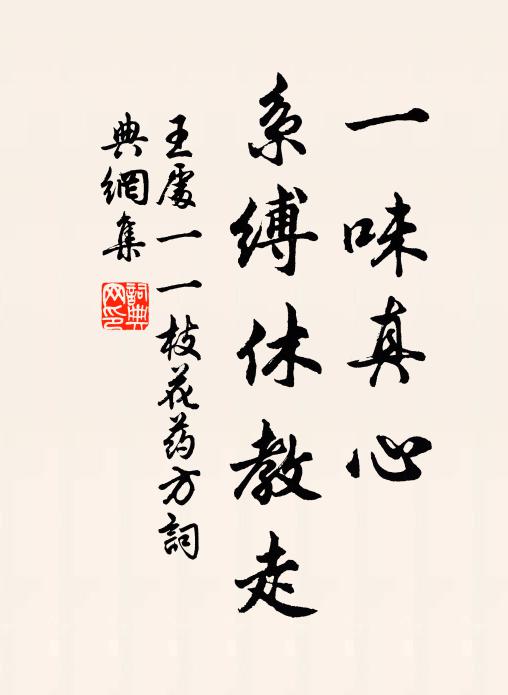 一味真心
系缚休教走
王處一一枝花药方詞
典網集
詞典網印